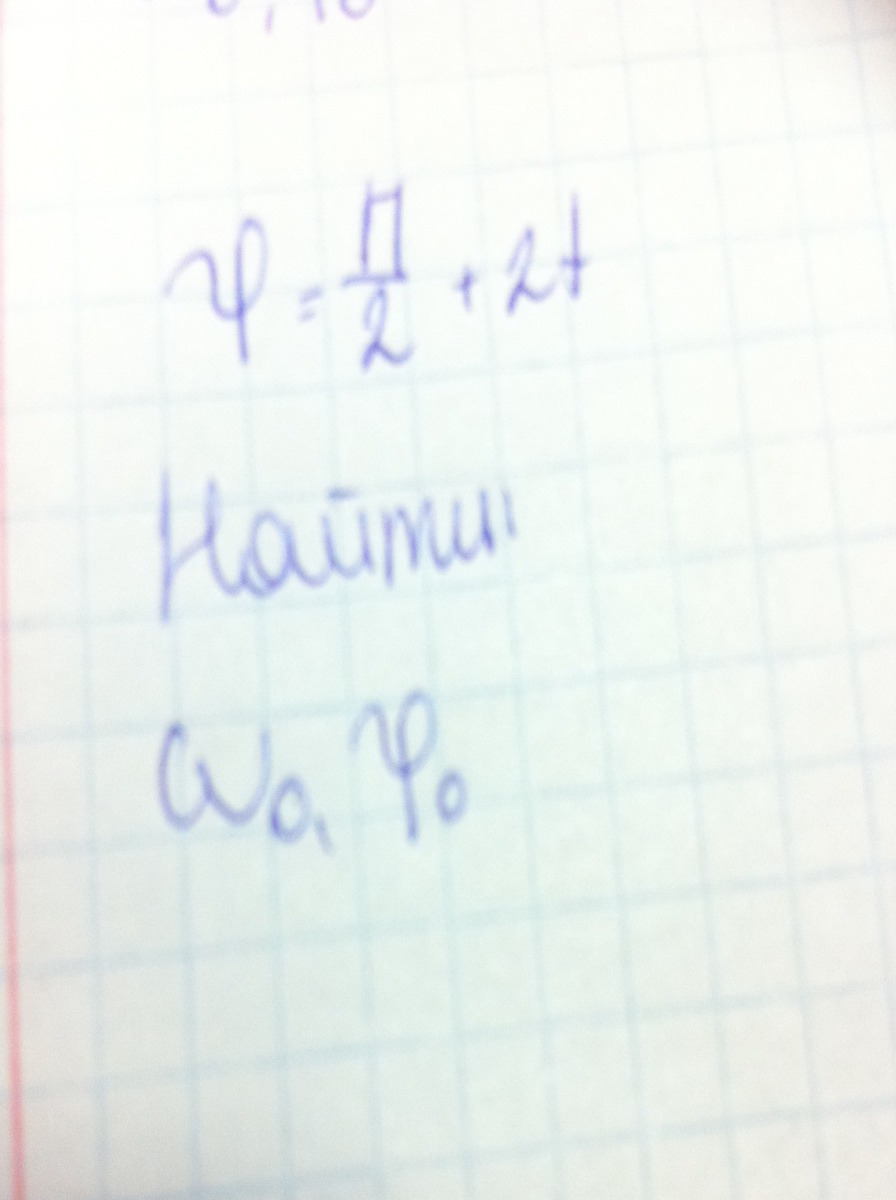 φ = П/2 + 2t
Найти
ω₀, φ₀